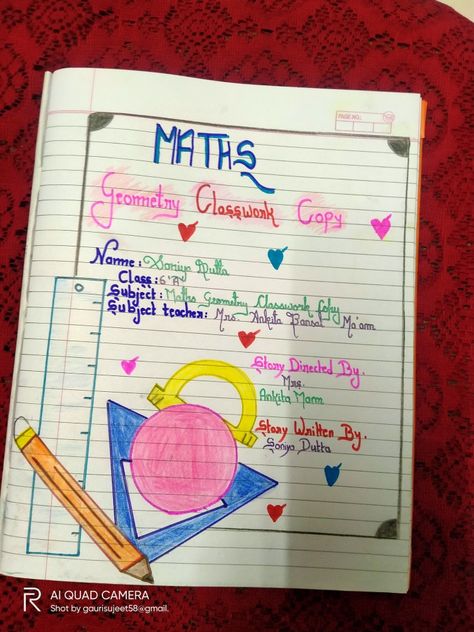 PAGE NO.:
MATHS
Geometry Classwork Copy
Name: Soniya Dutta
Class: 6'A'
Subject: Maths Geometry Classwork Copy
Subject teacher: Mrs. Ankita Bansal Ma'am
Story Directed By.
Mrs.
Ankita Mam
Story Written By.
Soniya Dutta
AI QUAD CAMERA
Shot by gaurisujeet58@gmail.